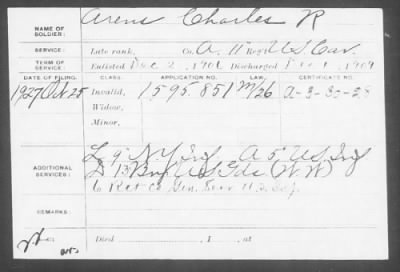 NAME OF SOLDIER: Arens Charles R
SERVICE: Late rank, Co. A. 11" Reg't U S Cav.
TERM OF SERVICE: Enlisted Dec 2, 1906 Discharged Dec 1, 1909
DATE OF FILING. CLASS. APPLICATION NO. LAW. CERTIFICATE NO.
1927 Oct 25 Invalid, 1595851 M/26 A-3-30-28
Widow,
Minor,
ADDITIONAL SERVICES: L 9" N Y Inf A 5" U S Inf
13 Bn U S Gds (W W)
6 Rct Co Gen. Serv Inf
REMARKS:
Died , 1 , at